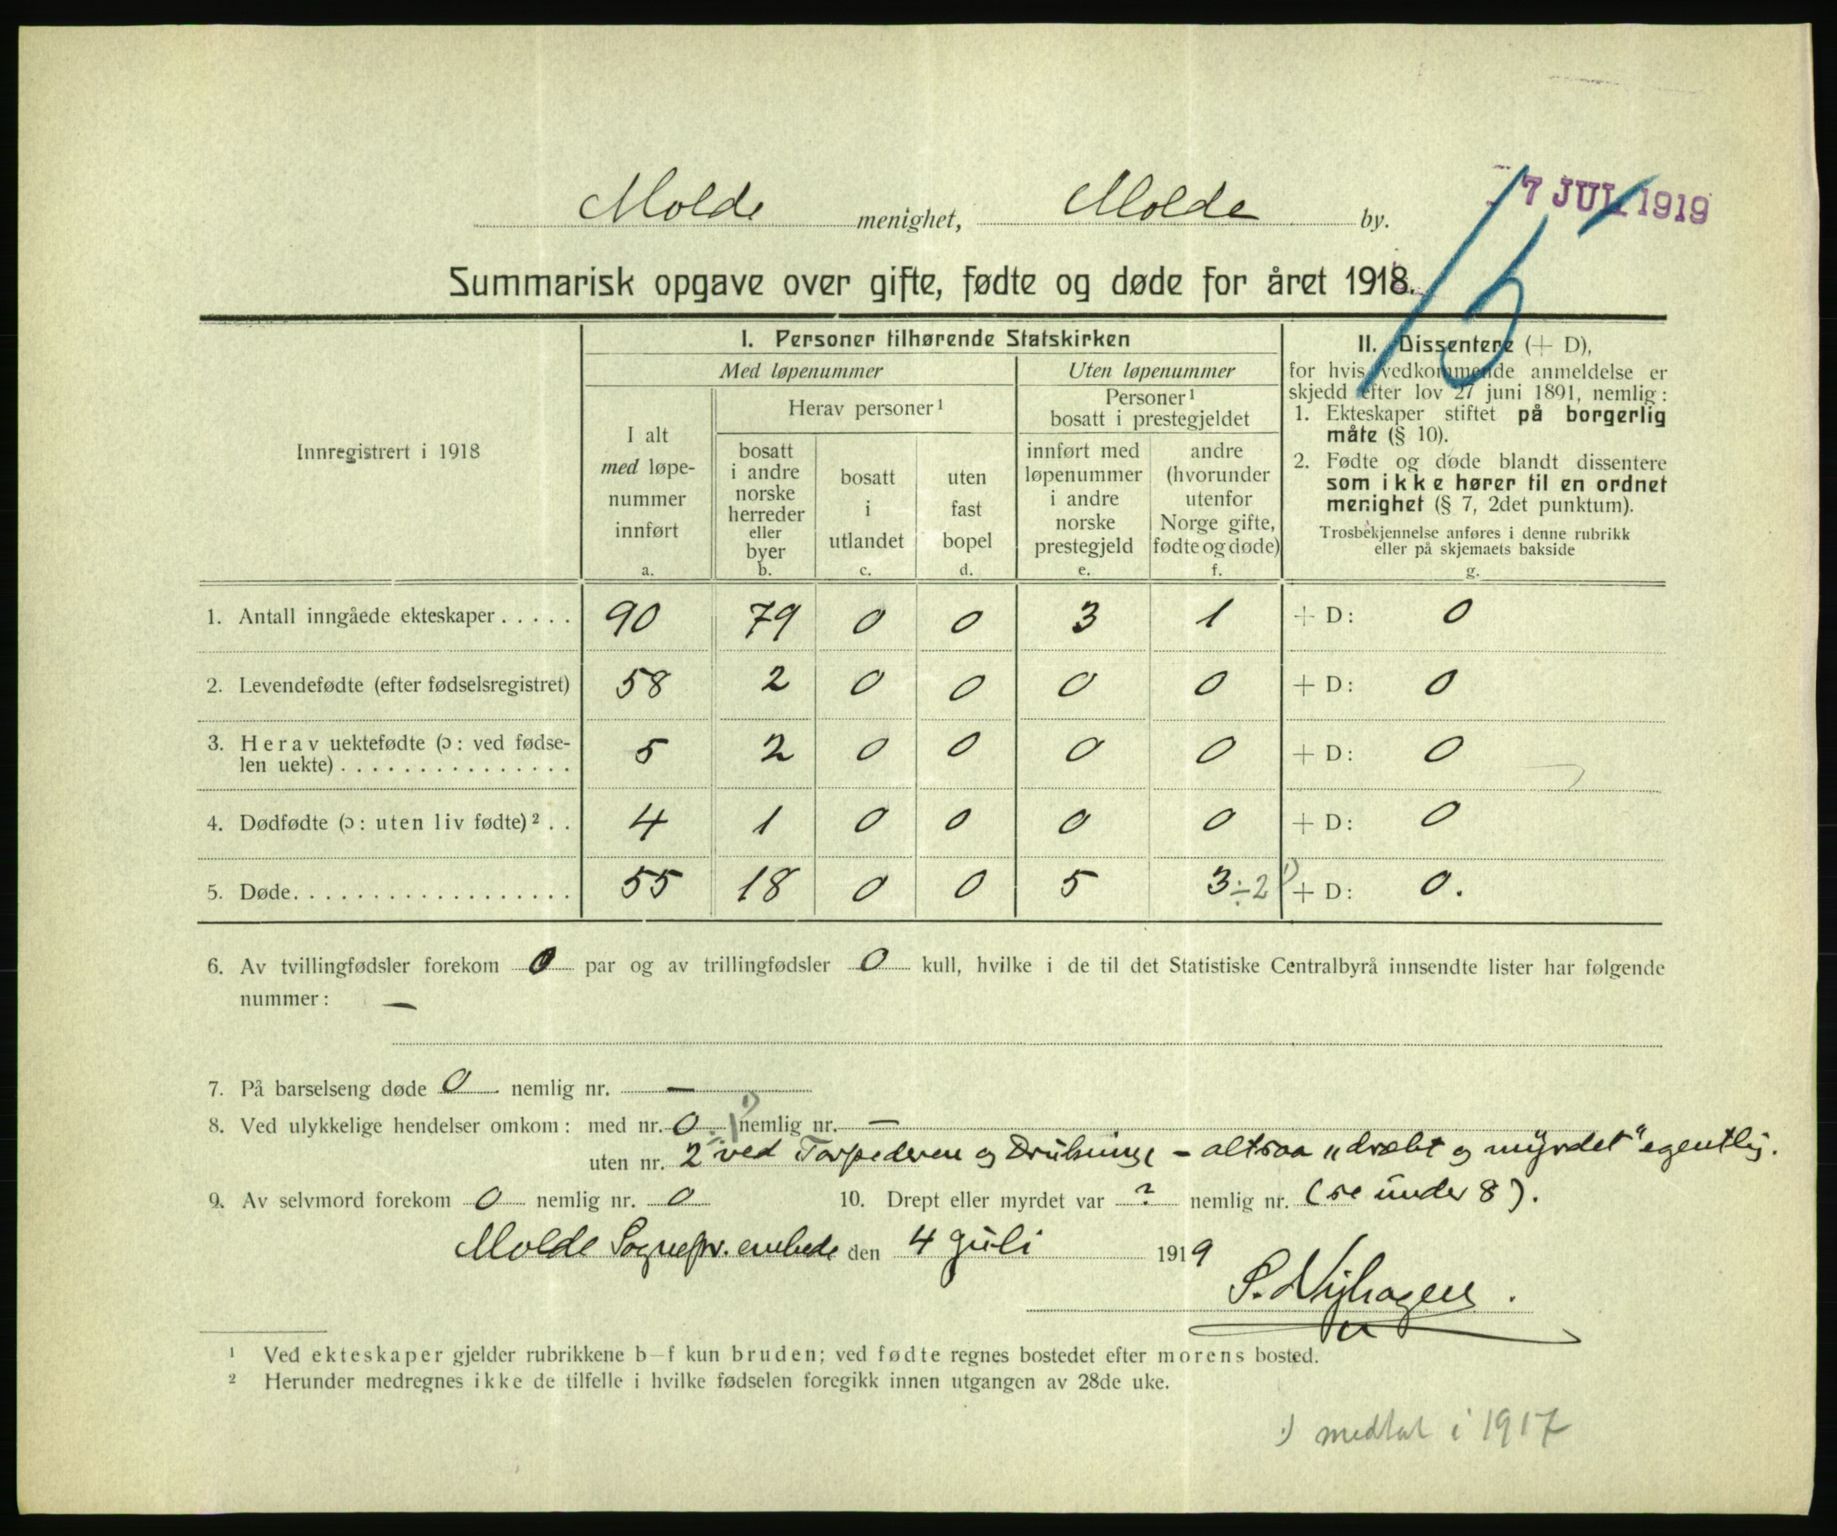 7 JUL 1919
15
Molde menighet, Molde by.
Summarisk opgave over gifte, fødte og døde for året 1918.
Innregistrert i 1918
I. Personer tilhørende Statskirken
Med løpenummer
Uten løpenummer
I alt
med løpe-
nummer
innført
a.
Herav personer¹
bosatt
i andre
norske
herreder
eller
byer
b.
bosatt
i
utlandet
c.
uten
fast
bopel
d.
Personer¹
bosatt i prestegjeldet
innført med
løpenummer
i andre
norske
prestegjeld
e.
andre
(hvorunder
utenfor
Norge gifte,
fødte og døde)
f.
II. Dissentere (+ D),
for hvis vedkommende anmeldelse er
skjedd efter lov 27 juni 1891, nemlig:
1. Ekteskaper stiftet på borgerlig
måte (§ 10).
2. Fødte og døde blandt dissentere
som ikke hører til en ordnet
menighet (§ 7, 2det punktum).
Trosbekjennelse anføres i denne rubrikk
eller på skjemaets bakside
g.
1. Antall inngåede ekteskaper . . . . . 90 79 0 0 3 1 + D: 0
2. Levendefødte (efter fødselsregistret) 58 2 0 0 0 0 + D: 0
3. Herav uektefødte (ɔ: ved fødse-
len uekte) . . . . . . . . . . . . . . . 5 2 0 0 0 0 + D: 0
4. Dødfødte (ɔ: uten liv fødte)² . . 4 1 0 0 0 0 + D: 0
5. Døde. . . . . . . . . . . . . . . . . . 55 18 0 0 5 3 ÷2 ¹) + D: 0.
6. Av tvillingfødsler forekom 0 par og av trillingfødsler 0 kull, hvilke i de til det Statistiske Centralbyrå innsendte lister har følgende
nummer: —
7. På barselseng døde 0 nemlig nr. —
8. Ved ulykkelige hendelser omkom: med nr. 0 nemlig nr. —
uten nr. 2 ved Torpederen og Drukning - altsaa „dræbt og myrdet" egentlig.
9. Av selvmord forekom 0 nemlig nr. 0 10. Drept eller myrdet var ? nemlig nr. (se under 8).
Molde Sognepr. embede den 4 juli 1919
S. Nyhagen
¹ Ved ekteskaper gjelder rubrikkene b—f kun bruden; ved fødte regnes bostedet efter morens bosted.
² Herunder medregnes ikke de tilfelle i hvilke fødselen foregikk innen utgangen av 28de uke.
¹) medtat i 1917